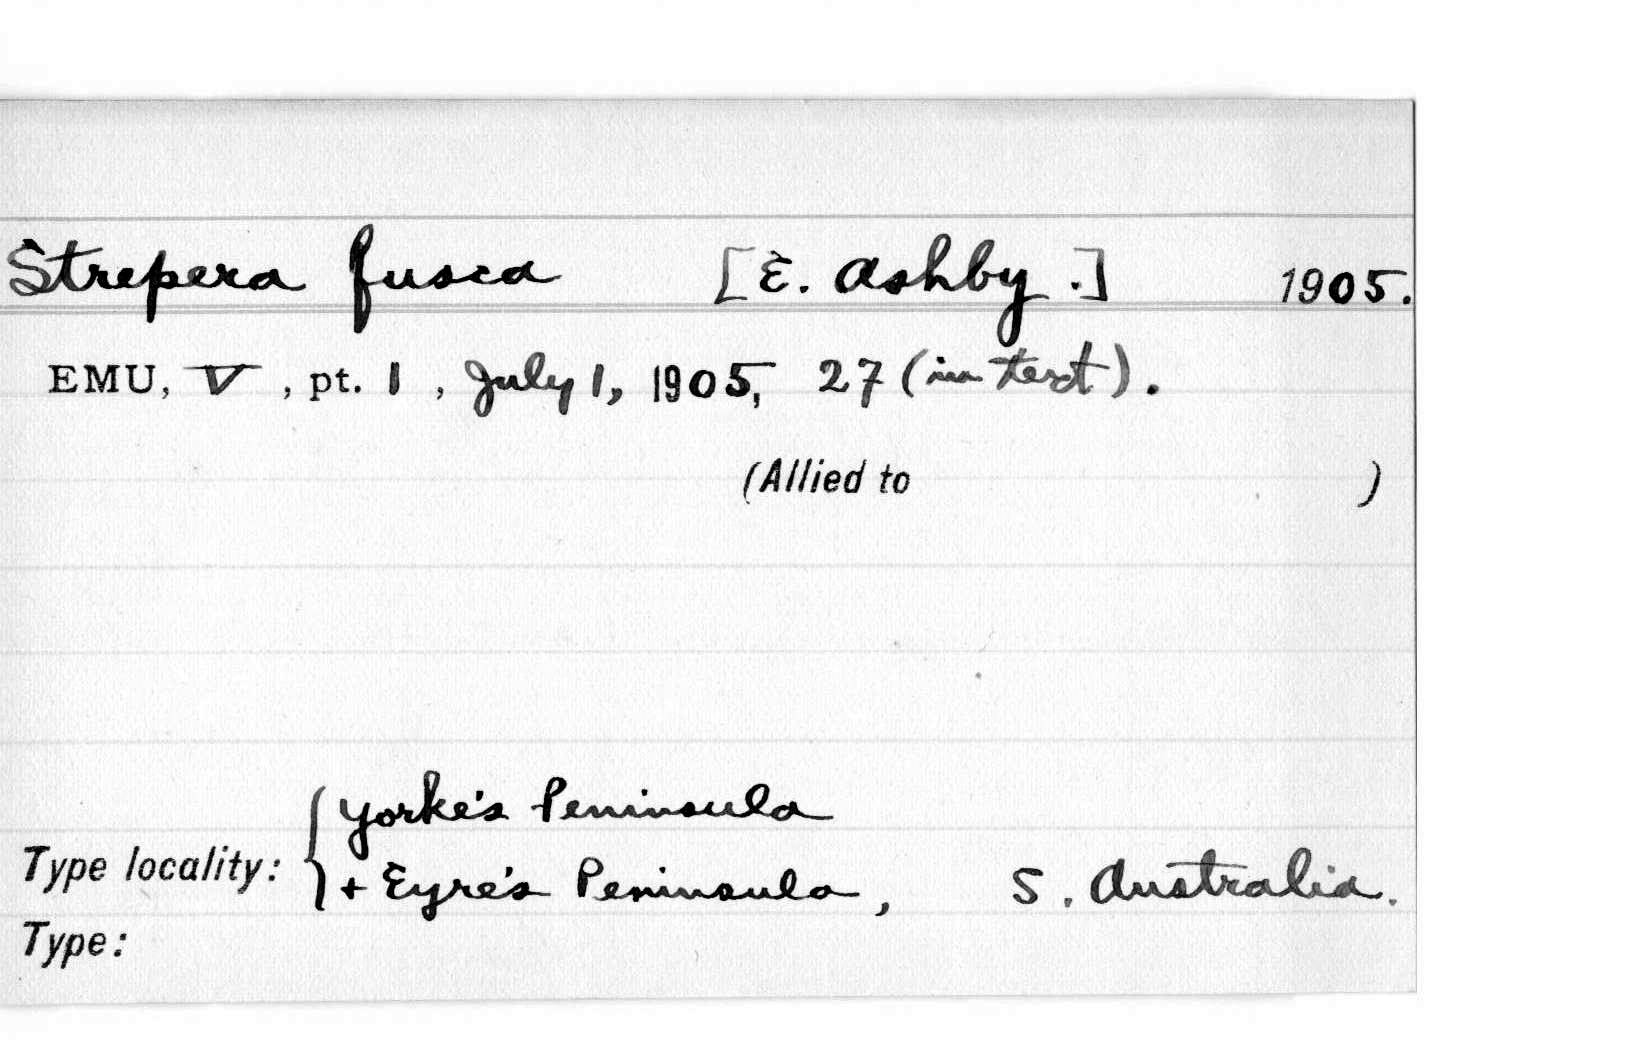 Strepera fusca [E. Ashby.] 1905.
EMU, V, pt. 1, July 1, 1905, 27 (in text).
(Allied to )
Yorke's Peninsula
Type locality: { + Eyre's Peninsula, S. Australia.
Type: